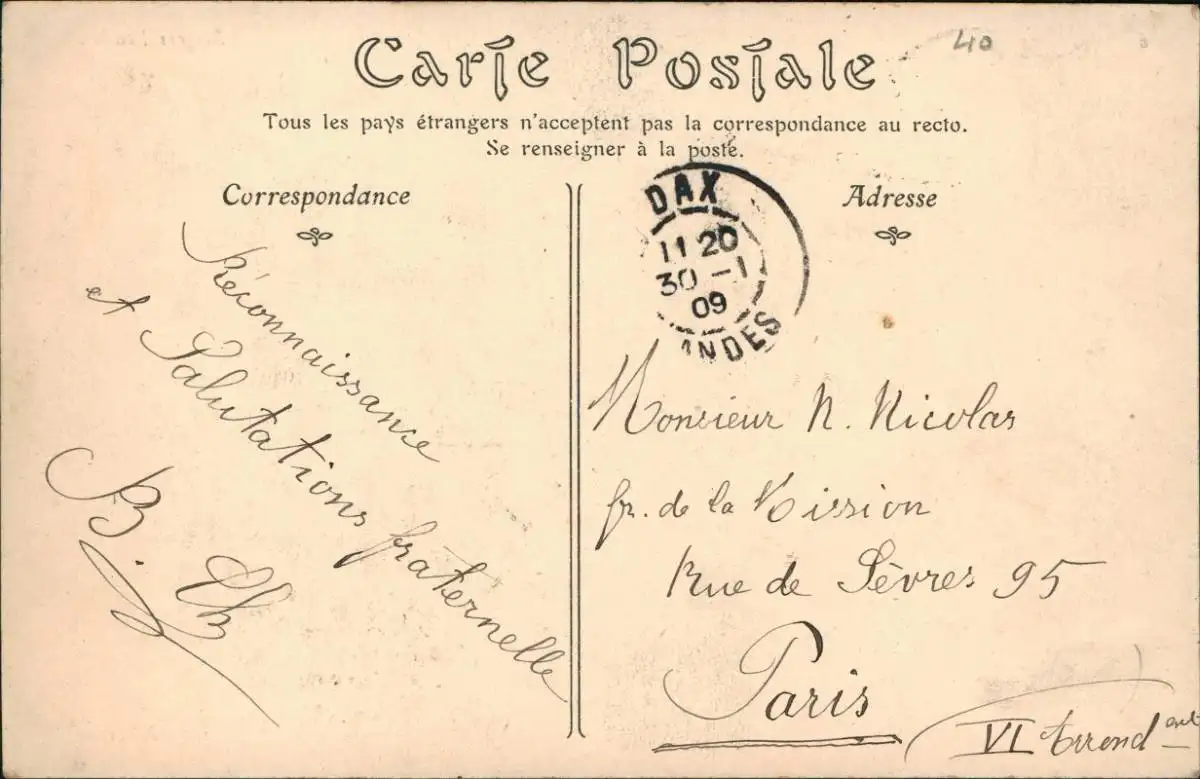 40
Carte Postale
Tous les pays étrangers n'acceptent pas la correspondance au recto.
Se renseigner à la poste.
Correspondance
Réconnaissance
et Salutations fraternelle
B. Ch
DAX
11 20
30 -1
09
ANDES
Adresse
Monsieur N. Nicolas
fr. de la Mission
Rue de Sèvres 95
Paris
VI Arrond